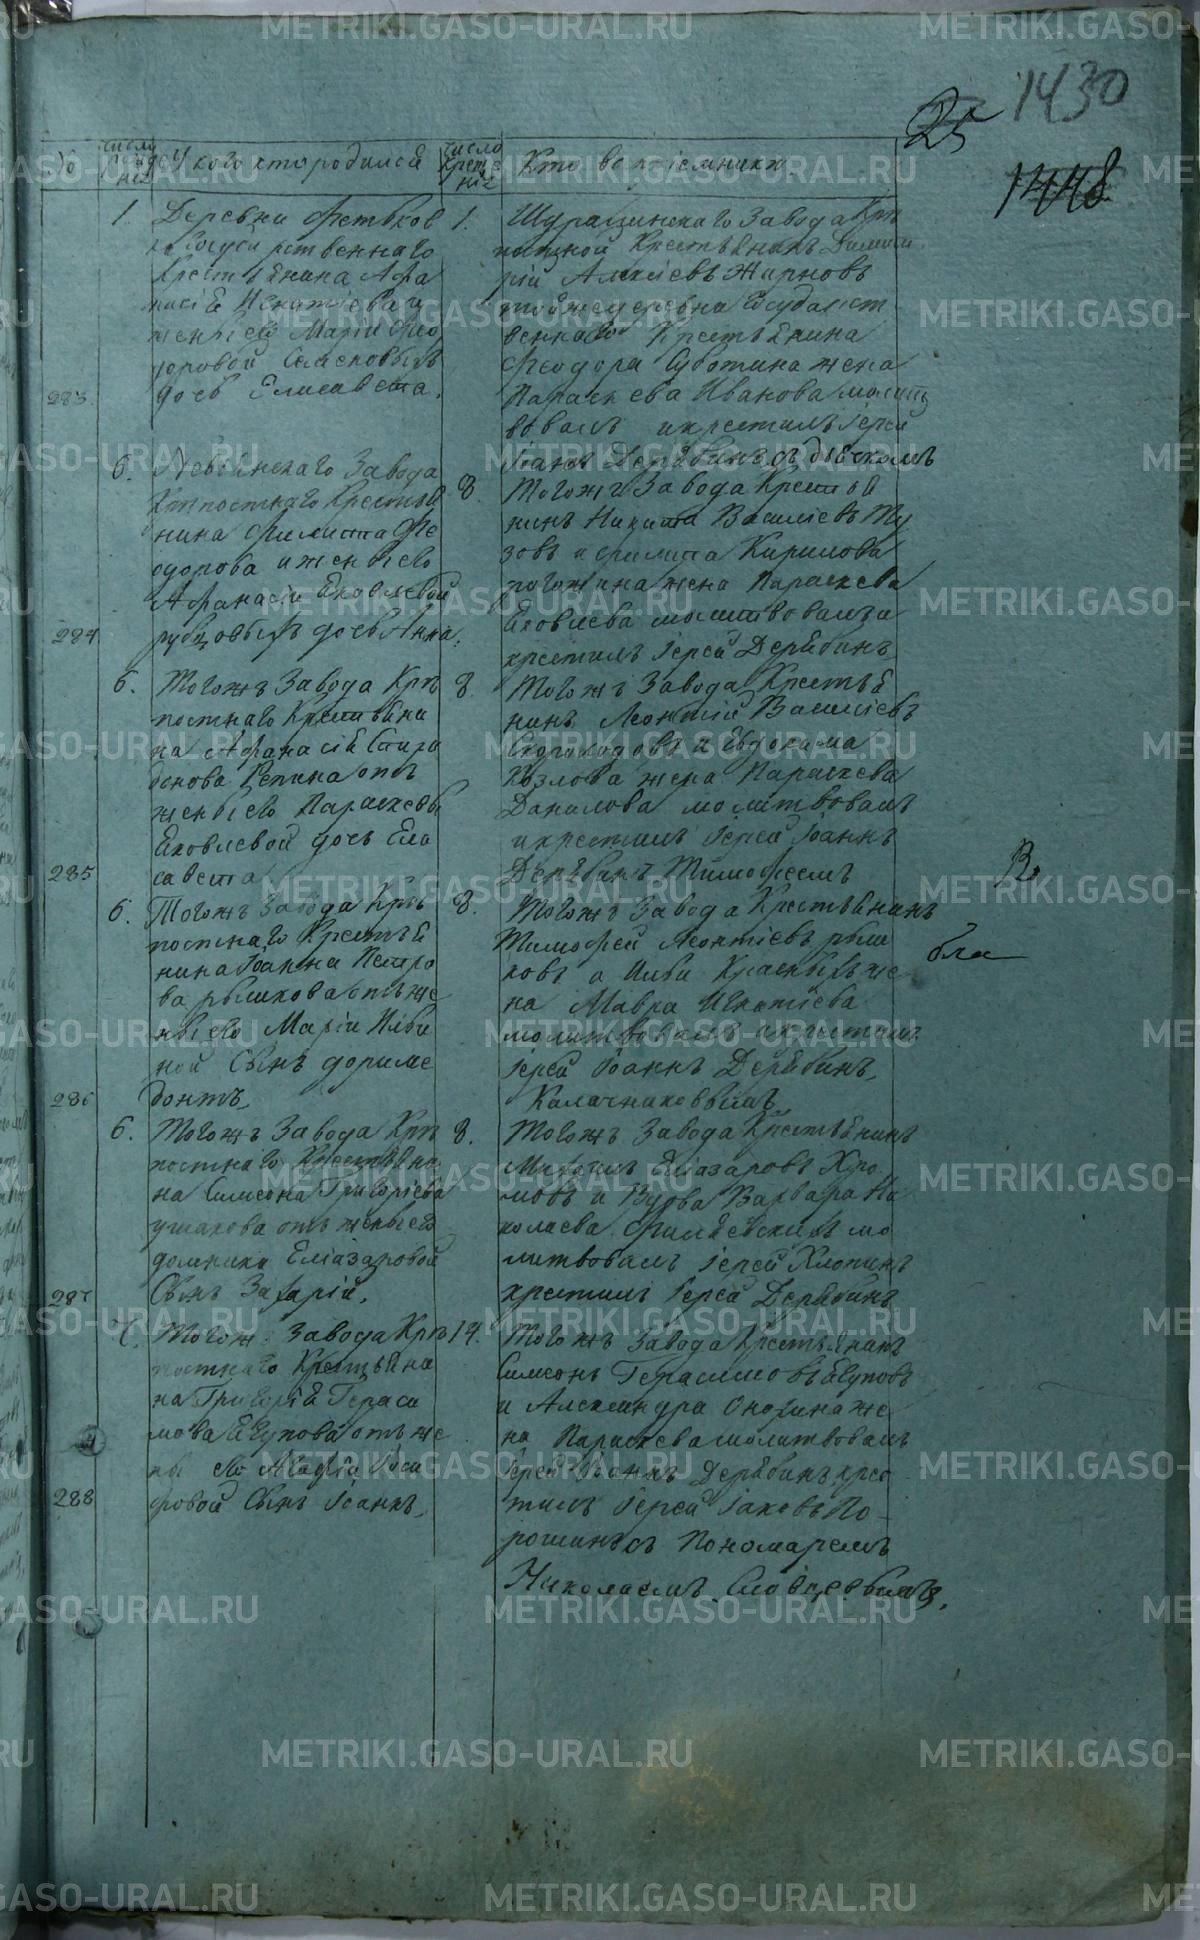 METRIKI.GASO-URAL.RU
1430
25
1448
№
число рождения
У кого кто родился
число крещения
Кто восприемники
1. Деревни Фетьков
Крестьянина Афа
насія Игнатіева и
жены его Маріи Фео
доровой
283
дочь Елисавета.
1.
Шурашинскаго Завода Крѣ
постной Крестьянинъ Димит
рій Алексіевъ Жирновъ
тойже деревни Государст
веннаго Крестьянина
Феодора Суботина жена
Параскева Иванова молитв
вовалъ и крестилъ Іерей
Іоаннъ Дерябинъ съ дьячкомъ
6.
Невьянскаго Завода
Крѣпостнаго Крестья
нина Филиппа Фе
одорова и жены его
Афанасіи Яковлевой
284
рубцовыхъ дочь Анна.
8.
Тогожъ Завода Крестья
нинъ Никита Василіевъ Ту
зовъ и Филипа Кирилова
рогожина жена Параскева
Яковлева молитвовалъ и
крестилъ Іерей Дерябинъ
6.
Тогожъ Завода Крѣ
постнаго Крестьяни
на Афанасія Спири
донова Репина отъ
жены его Параскевы
Яковлевой дочь Ели
285
савета
8.
Тогожъ Завода Крестья
нинъ Леонтій Василіевъ
Скороходовъ и Евдокима
Козлова жена Параскева
Данилова молитвовалъ
и крестилъ Іерей Іоаннъ
Дерябинъ Тимофеемъ
6.
Тогожъ Завода Крѣ
постнаго Крестья
нина Іоанна Петро
ва рылкова отъ же
ны его Маріи Ильи
ной Сынъ дориме
286
донтъ
8.
Тогожъ Завода Крестьянинъ
Тимофей Леонтіевъ рыл
ковъ а Ильи Красныхъ же
на Мавра Игнатіева
молитвовалъ и крестилъ
Іерей Іоаннъ Дерябинъ
Калачниковымъ
6.
Тогожъ Завода Крѣ
постнаго Крестьяни
на Симеона Григоріева
ушакова отъ жены его
домники Еліазаровой
287
Сынъ Захарій.
8.
Тогожъ Завода Крестьянинъ
Михаилъ Еліазаровъ Хро
мовъ и Вдова Варвара Ни
колаева мо
литвовалъ Іерей Хлопинъ
крестилъ Іерей Дерябинъ
7.
Тогожъ Завода Крѣ
постнаго Крестьяни
на Григорія Гераси
мова Есупова отъ же
ны его Агафіи Іоси
288
фовой Сынъ Іоаннъ.
14.
Тогожъ Завода Крестьянинъ
Симеонъ Герасимовъ Есуповъ
и Александра Онохина же
на Параскева молитвовалъ
Іерей Іоаннъ Дерябинъ крес
тилъ Іерей Іаковъ По
рошинъ съ Пономаремъ
Николаемъ Словцовымъ.